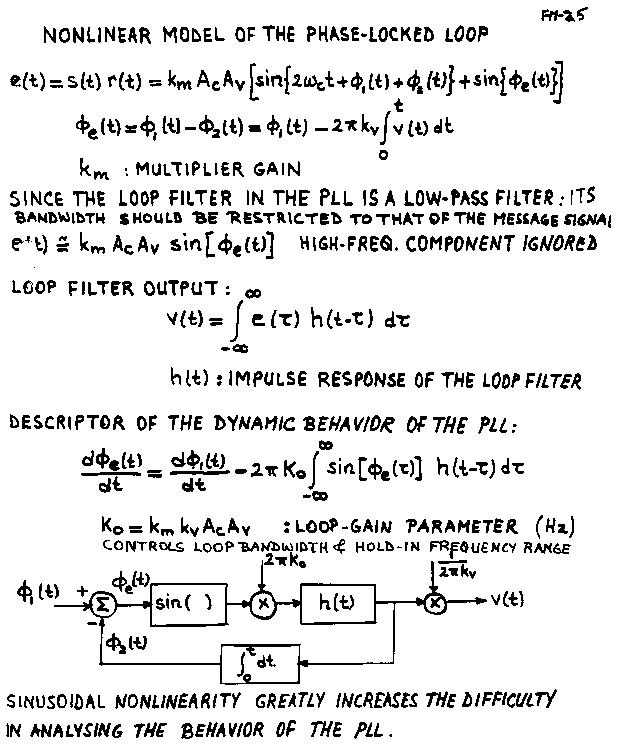 FM-25
NONLINEAR MODEL OF THE PHASE-LOCKED LOOP
e(t) = s(t) r(t) = km Ac Av [sin{2ωct + ϕ1(t) + ϕ2(t)} + sin{ϕe(t)}]
ϕe(t) = ϕ1(t) - ϕ2(t) = ϕ1(t) - 2π kv ∫0^t v(t) dt
km : MULTIPLIER GAIN
SINCE THE LOOP FILTER IN THE PLL IS A LOW-PASS FILTER : ITS
BANDWIDTH SHOULD BE RESTRICTED TO THAT OF THE MESSAGE SIGNAL
e(t) ≅ km Ac Av sin[ϕe(t)] HIGH-FREQ. COMPONENT IGNORED
LOOP FILTER OUTPUT :
v(t) = ∫-∞^∞ e(τ) h(t-τ) dτ
h(t) : IMPULSE RESPONSE OF THE LOOP FILTER
DESCRIPTOR OF THE DYNAMIC BEHAVIOR OF THE PLL :
dϕe(t)/dt = dϕ1(t)/dt - 2π K0 ∫-∞^∞ sin[ϕe(τ)] h(t-τ) dτ
K0 = km kv Ac Av : LOOP-GAIN PARAMETER (Hz)
CONTROLS LOOP BANDWIDTH & HOLD-IN FREQUENCY RANGE
2πK0 1/2πkv
ϕ1(t) + Σ ϕe(t) sin( ) × h(t) × v(t)
- ϕ2(t)
∫0^t dt
SINUSOIDAL NONLINEARITY GREATLY INCREASES THE DIFFICULTY
IN ANALYSING THE BEHAVIOR OF THE PLL.